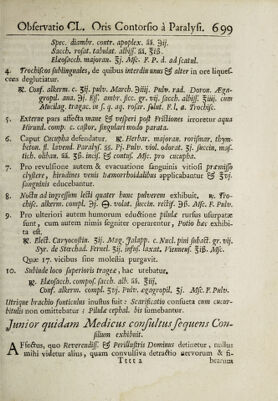 Observatio CL. Oris Contorsio à Paralysi. 699
Spec. diambr. contr. apoplex. āā. ℈ij.
Sacch. rosat. tabulat. albiss. āā. ʒiß.
Elæosacch. majoran. ʒj. Msc. F. P. d. ad scatul.
4. Trochiscos sublinguales, de quibus interdiu unus & alter in ore liquescens deglutiatur.
℞. Conf. alkerm. c. ʒij. pulv. March. ℈iiij. Pulv. rad. Doron. Ægagropil. ana. ℈j. Ess. ambr. sicc. gr. vij. sacch. albiss. ℥iiij. cum
Mucilag. tragac. in s. q. aq. rosar. solut. F. l. a. Trochisc.
5. Externe pars affecta mane & vesperi post Frictiones irroretur aqua
Hirund. comp. c. castor. singulari modo parata.
6. Caput Cucupha defendatur. ℞. Herbar. majoran. rorismar. thym-
beton. fl. lavend. Paralys. āā. Pj. Pulv. viol. odorat. ʒj. succin, mastich. oliban. āā. ʒß. incis. & contus. Msc. pro cucupha.
7. Pro revulsione autem & evacuatione sanguinis vitiosi præmisso
clystere, hirudines venis hæmorrhoidalibus applicabantur & ℥vj.
sanguinis educebantur.
8. Noctu ad ingressum lecti quater hunc pulverem exhibuit, ℞. Trochisc. alkerm. compl. ℈j. volat. succin. rectif. ℈ß. Msc. F. Pulv.
9. Pro ulteriori autem humorum eductione pilulæ rursus usurpatæ
sunt, cum autem nimis segniter operarentur, Potio hæc exhibita est.
℞. Elect. Caryocostin. ʒij. Mag. Jalapp. c. Nucl. pini subact. gr. vij.
Syr. de Stœchad. Fernel. ʒij. infus. laxat. Viennens. ℥iiß. Msc.
Quæ 17. vicibus sine molestia purgavit.
10. Subinde loco superioris tragex, hac utebatur,
℞. Elæosacch. compos. sacch. alb. āā. ℥iij.
Conf. alkerm. compl. ʒvj. Pulv. ægagropil. ʒj. Msc. F. Pulv.
Utrique brachio fonticulus inustus fuit: Scarificatio consueta cum cucurbitulis non omittebatur: Pilulæ cephal. his sumebantur.
Junior quidam Medicus consultus sequens Con-
silium exhibuit.
AFfectus, quo Reverendiss. & Perillustris Dominus detinetur, nullus
mihi videtur alius, quam convulsiva detractio nervorum & fi-
Tttt 2 brarum